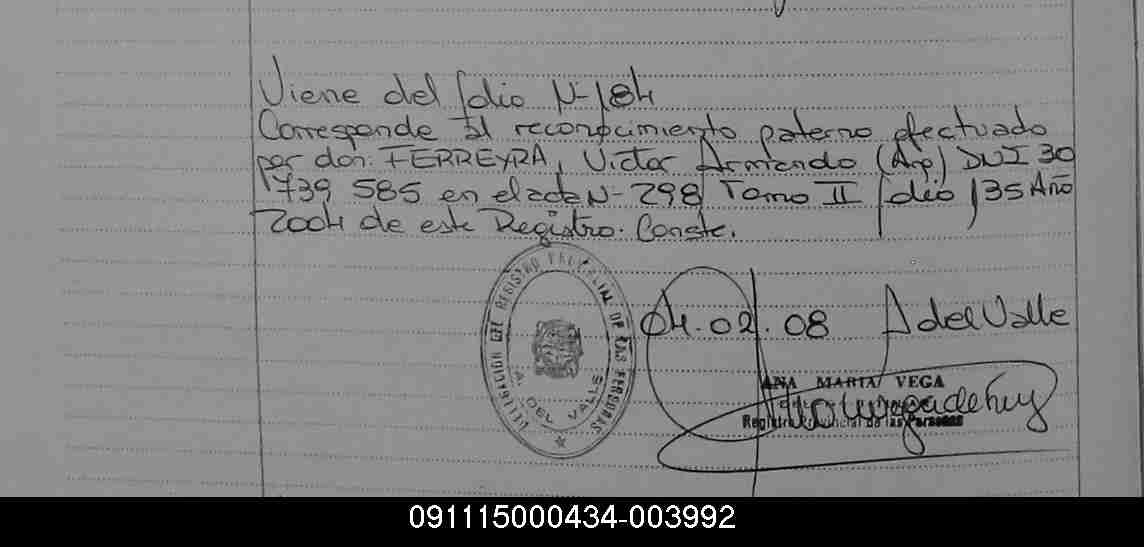 Viene del folio N-184
Corresponde al reconocimiento paterno efectuado
por don: FERREYRA, Victor Armando (Arg) DNI 30
739 585 en el acta N-298 Tomo II folio 135 Año
2004 de este Registro. Conste.
DELEGACION DEL REGISTRO PROVINCIAL DE LAS PERSONAS
A. DEL VALLE
04.02.08 A del Valle
ANA MARIA VEGA
Registro Provincial de las Personas
091115000434-003992